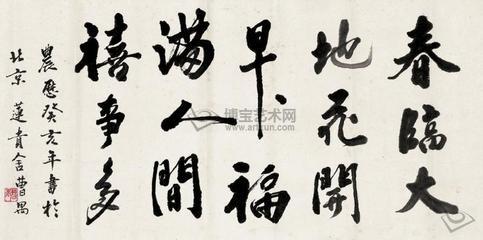 春臨大
地花開
早福
滿人間
禧事多
農曆癸亥年書於
北京 蓮青舍 曹禺
博宝艺术网
artxun.com